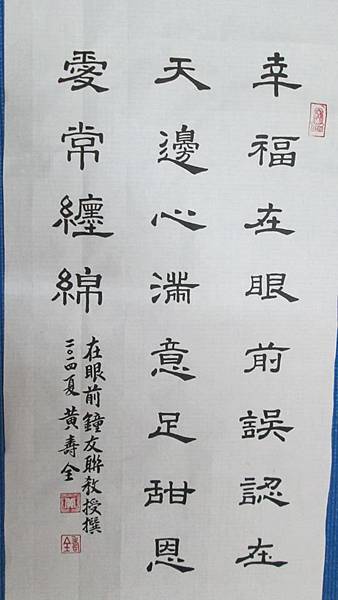 幸福在眼前誤認在
天邊心滿意足甜恩
愛常纏綿
在眼前鐘友聯教授撰
二〇一四夏 黃壽全